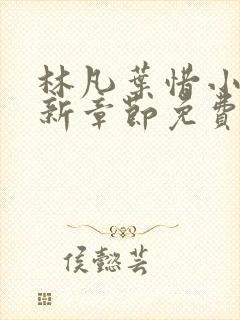 林凡葉惜小
新章節免費
侯懿芸